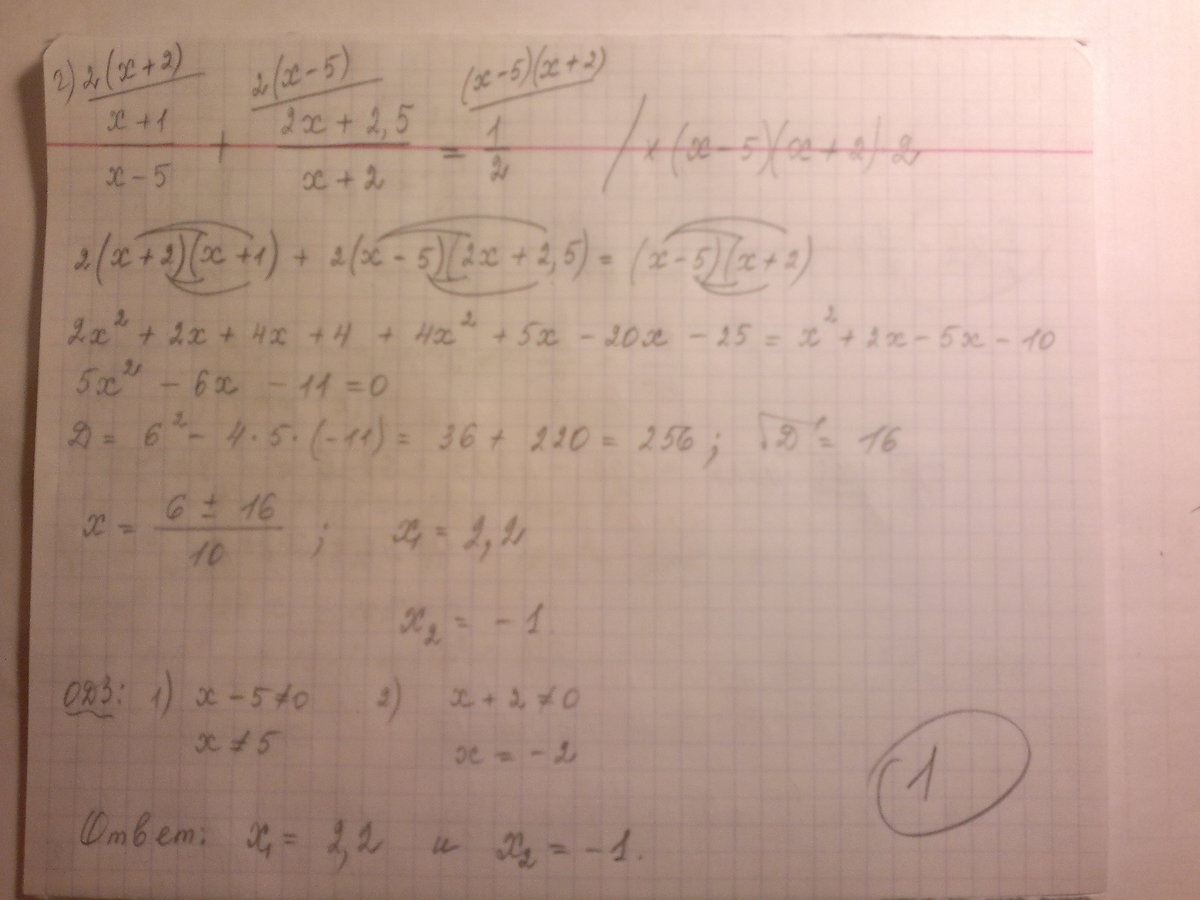 г) 2(x+2) 2(x-5) (x-5)(x+2)
(x+1)/(x-5) + (2x+2,5)/(x+2) = 1/2 / × (x-5)(x+2)·2
2(x+2)(x+1) + 2(x-5)(2x+2,5) = (x-5)(x+2)
2x² + 2x + 4x + 4 + 4x² + 5x - 20x - 25 = x² + 2x - 5x - 10
5x² - 6x - 11 = 0
Д = 6² - 4·5·(-11) = 36 + 220 = 256; √Д = 16
x = (6 ± 16)/10 ; x₁ = 2,2
x₂ = -1.
ОДЗ: 1) x - 5 ≠ 0 2) x + 2 ≠ 0
x ≠ 5 x = -2
1
Ответ: x₁ = 2,2 и x₂ = -1.